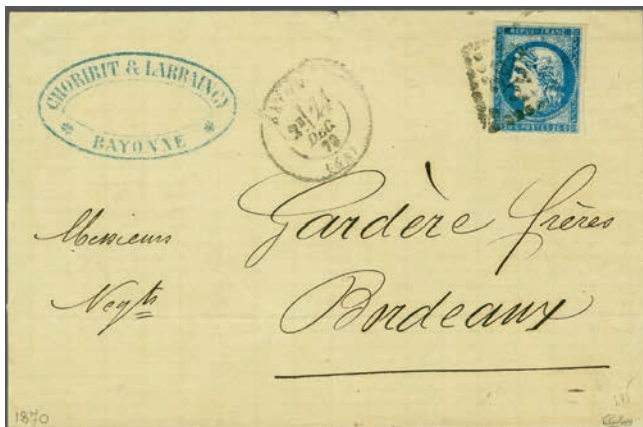 CHORIBIT & LARRAINGY
BAYONNE
BAYONNE
2E
24
DEC
72
(64)
REPUB. FRANC.
POSTES
Messieurs
Gardère frères
Negts
Bordeaux
1870